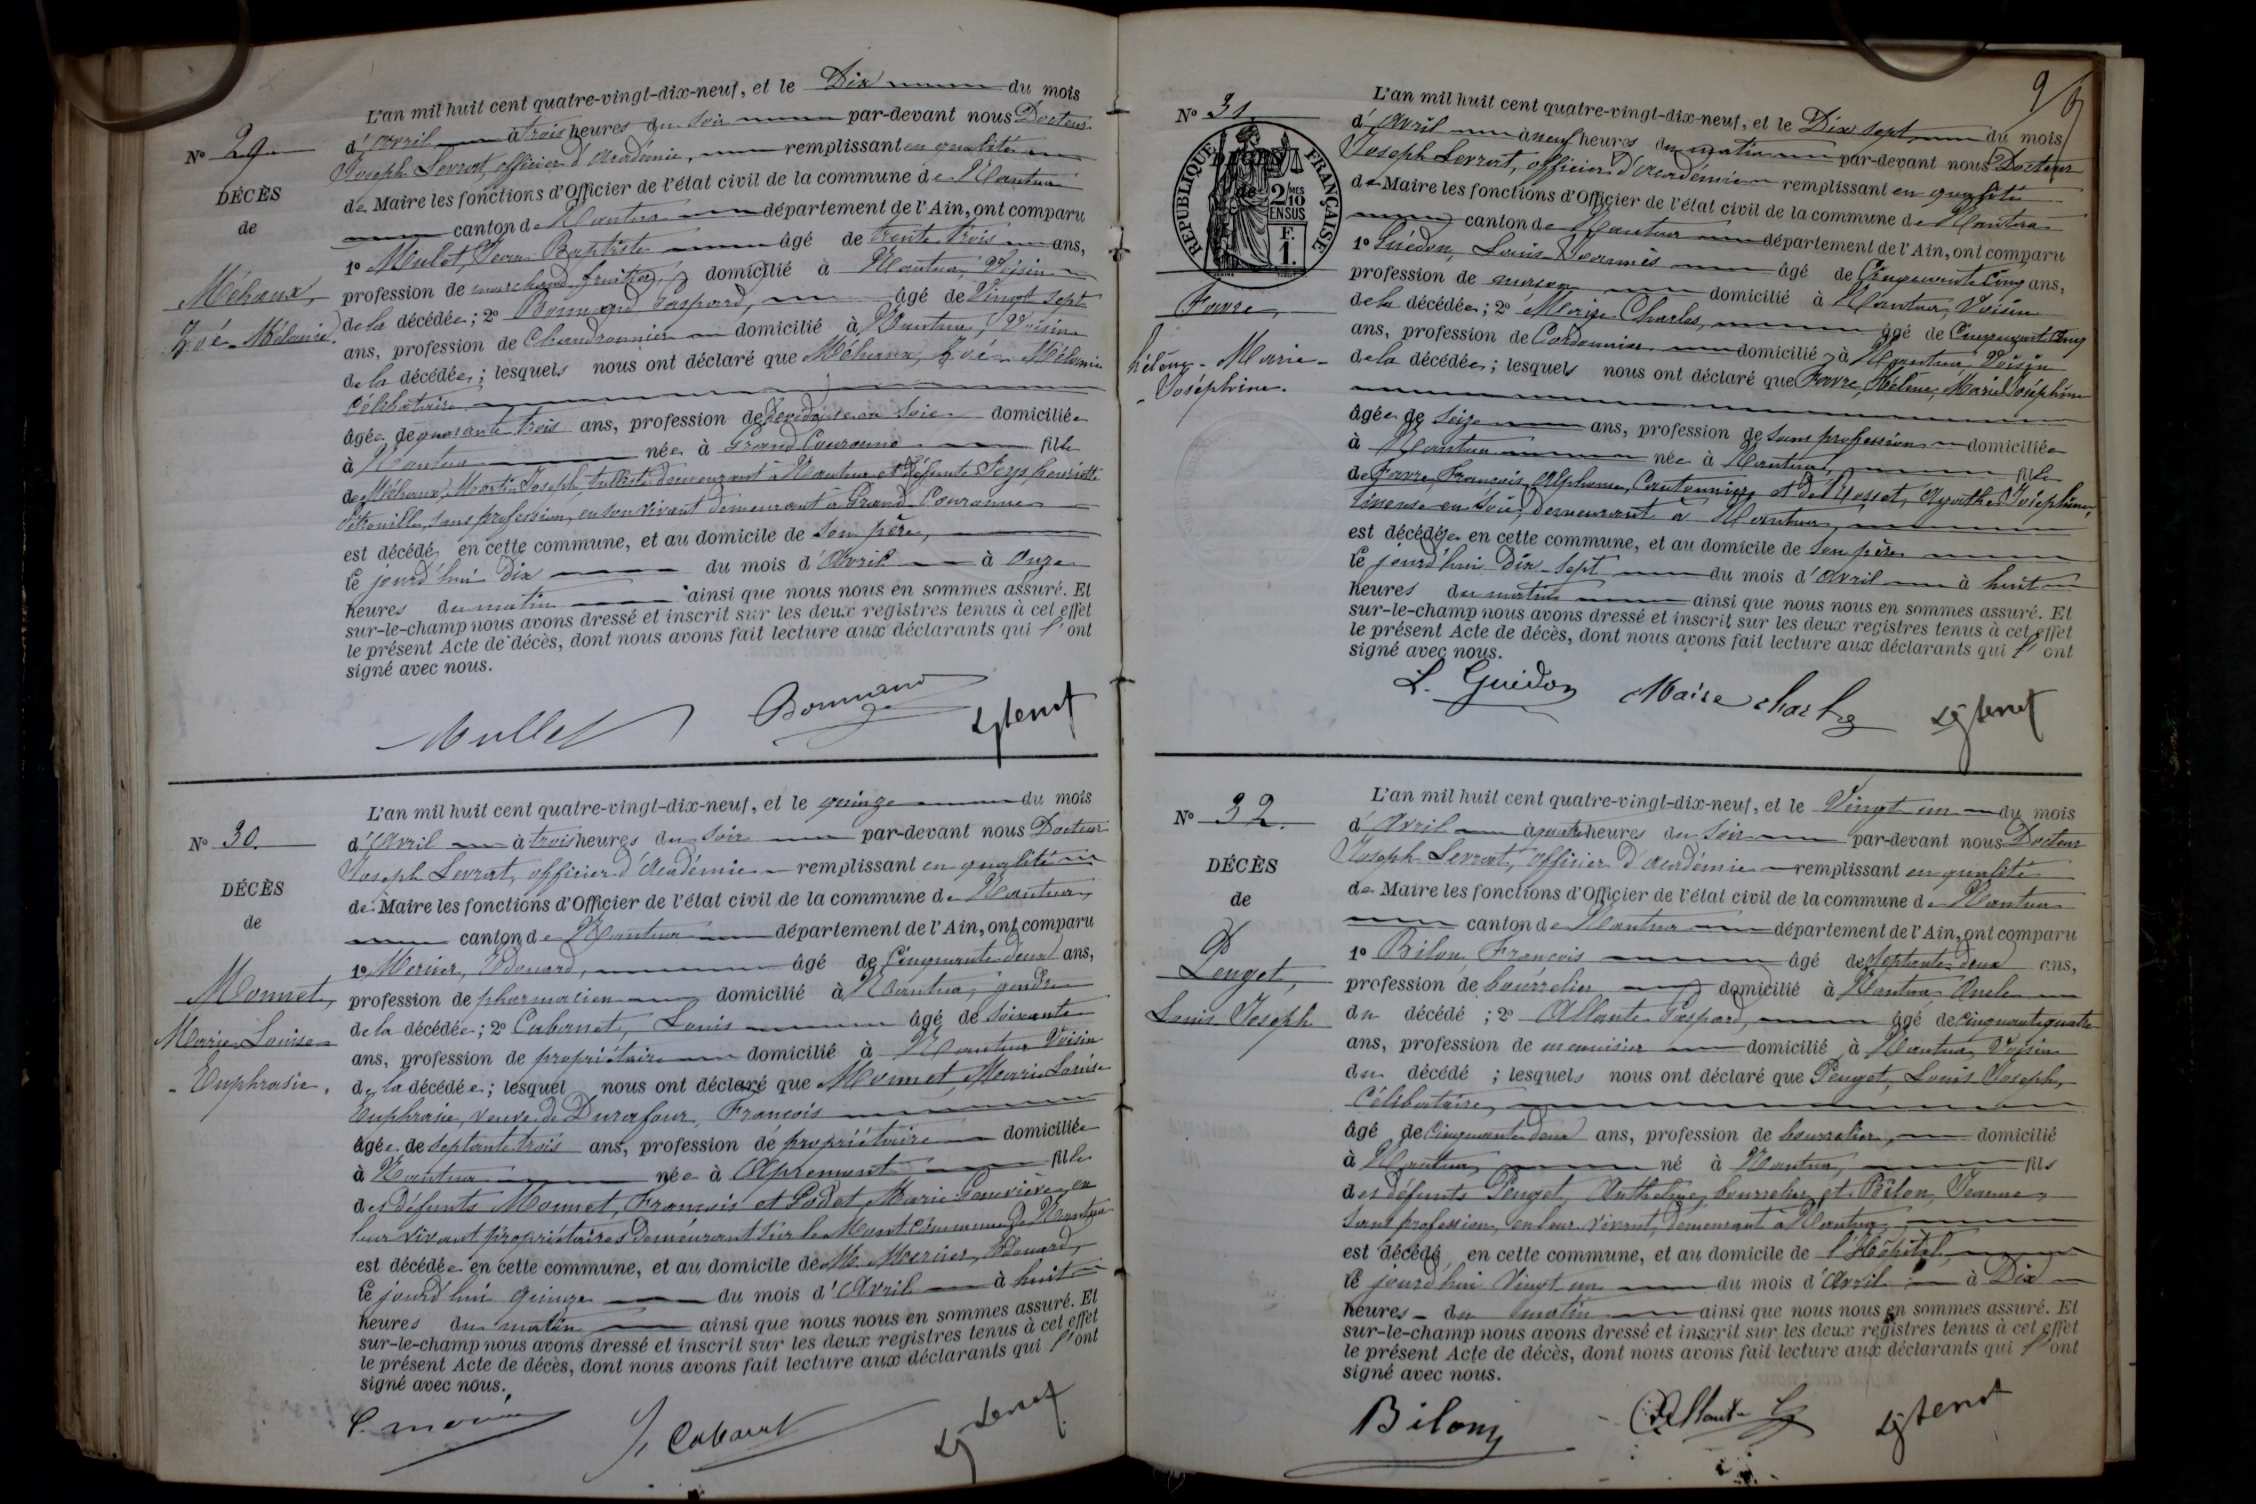 L'an mil huit cent quatre-vingt-dix-neuf, et le Dix du mois
Nº 29
d'Avril à trois heures du soir par-devant nous Docteur
Joseph Levrat, officier d'Académie, remplissant en qualité
DÉCÈS
de Maire les fonctions d'Officier de l'état civil de la commune de Nantua
de
canton de Nantua département de l'Ain, ont comparu
1º Mulet, Jean Baptiste âgé de trente trois ans,
Méhaux,
profession de marchand fruitier, domicilié à Nantua, Voisin
Zoé-Mélanie.
de la décédée; 2º Bonnard Gaspard, âgé de Vingt sept
ans, profession de Chaudronnier domicilié à Nantua, Voisin
de la décédée; lesquels nous ont déclaré que Méhaux, Zoé-Mélanie
Célibataire
âgée de quarante trois ans, profession de dévideuse en soie domiciliée
à Nantua née à Grand Couronne fille
de Méhaux, Martin Joseph, tulliste demeurant à Nantua et de défunte henriette
Pétronille, sans profession, en son vivant demeurant à Grand Couronne
est décédée en cette commune, et au domicile de son père,
le jourd'hui Dix du mois d'Avril à Onze
heures du matin ainsi que nous nous en sommes assuré. Et
sur-le-champ nous avons dressé et inscrit sur les deux registres tenus à cet effet
le présent Acte de décès, dont nous avons fait lecture aux déclarants qui l'ont
signé avec nous.
Mullet Bonnard
L'an mil huit cent quatre-vingt-dix-neuf, et le quinze du mois
Nº 30.
d'Avril à trois heures du soir par-devant nous Docteur
Joseph Levrat, officier d'Académie remplissant en qualité
DÉCÈS
de Maire les fonctions d'Officier de l'état civil de la commune de Nantua
de
canton de Nantua département de l'Ain, ont comparu
1º Mercier, Edouard, âgé de Cinquante deux ans,
Monnet,
profession de pharmacien domicilié à Nantua, gendre
Marie-Louise
de la décédée; 2º Cabanet, Louis âgé de soixante
- Euphrasie.
ans, profession de propriétaire domicilié à Nantua Voisin
de la décédée; lesquel nous ont déclaré que Monnet, Marie Louise
Euphrasie, veuve de Durafour, François
âgée de septante trois ans, profession de propriétaire domiciliée
à Nantua née à Apremont fille
des défunts Monnet, François et Godet, Marie Geneviève, en
leur vivant propriétaires demeurant sur le Mont commune de Nantua
est décédée en cette commune, et au domicile de M. Mercier, Edouard,
le jourd'hui quinze du mois d'Avril à huit
heures du matin ainsi que nous nous en sommes assuré. Et
sur-le-champ nous avons dressé et inscrit sur les deux registres tenus à cet effet
le présent Acte de décès, dont nous avons fait lecture aux déclarants qui l'ont
signé avec nous.
L. Cabanet
L'an mil huit cent quatre-vingt-dix-neuf, et le Dix sept du mois
Nº 31.
d'Avril à neuf heures du matin par-devant nous Docteur
Joseph Levrat, officier d'Académie remplissant en qualité
RÉPUBLIQUE FRANÇAISE
2/10 MES
EN SUS
F.
1.
de Maire les fonctions d'Officier de l'état civil de la commune de Nantua
canton de Nantua département de l'Ain, ont comparu
1º Guédon, Louis Joannès âgé de Cinquante Cinq ans,
profession de maçon domicilié à Nantua, Voisin
Favre,
de la décédée; 2º Charles, âgé de Cinquante Cinq
ans, profession de Cordonnier domicilié à Nantua, Voisin
hélène-Marie-
de la décédée; lesquels nous ont déclaré que Favre, Hélène, Marie Joséphine
Joséphine.
âgée de seize ans, profession de sans profession domiciliée
à Nantua née à Nantua, fille
de Favre, François Alphonse, Cantonnier et de Agathe Joséphine,
en soie, Demeurant à Nantua,
est décédée en cette commune, et au domicile de son père
le jourd'hui Dix-sept du mois d'Avril à huit
heures du matin ainsi que nous nous en sommes assuré. Et
sur-le-champ nous avons dressé et inscrit sur les deux registres tenus à cet effet
le présent Acte de décès, dont nous avons fait lecture aux déclarants qui l'ont
signé avec nous.
L. Guédon Charles
L'an mil huit cent quatre-vingt-dix-neuf, et le Vingt un du mois
Nº 32.
d'Avril à quatre heures du soir par-devant nous Docteur
Joseph Levrat, officier d'Académie remplissant en qualité
DÉCÈS
de Maire les fonctions d'Officier de l'état civil de la commune de Nantua
de
canton de Nantua département de l'Ain, ont comparu
1º Bilon, François âgé de septante deux ans,
Penget,
profession de bourrelier domicilié à Nantua Oncle
Louis Joseph
du décédé; 2º Allante Gaspard, âgé de cinquante quatre
ans, profession de menuisier domicilié à Nantua, Voisin
du décédé; lesquels nous ont déclaré que Penget, Louis Joseph,
Célibataire,
âgé de cinquante deux ans, profession de bourrelier, domicilié
à Nantua né à Nantua, fils
des défunts Penget, Anthelme, bourrelier, et Bilon, Jeanne,
sans profession, en leur vivant, demeurant à Nantua,
est décédé en cette commune, et au domicile de l'Hôpital,
le jourd'hui Vingt un du mois d'Avril à Dix
heures du matin ainsi que nous nous en sommes assuré. Et
sur-le-champ nous avons dressé et inscrit sur les deux registres tenus à cet effet
le présent Acte de décès, dont nous avons fait lecture aux déclarants qui l'ont
signé avec nous.
Bilon Allante